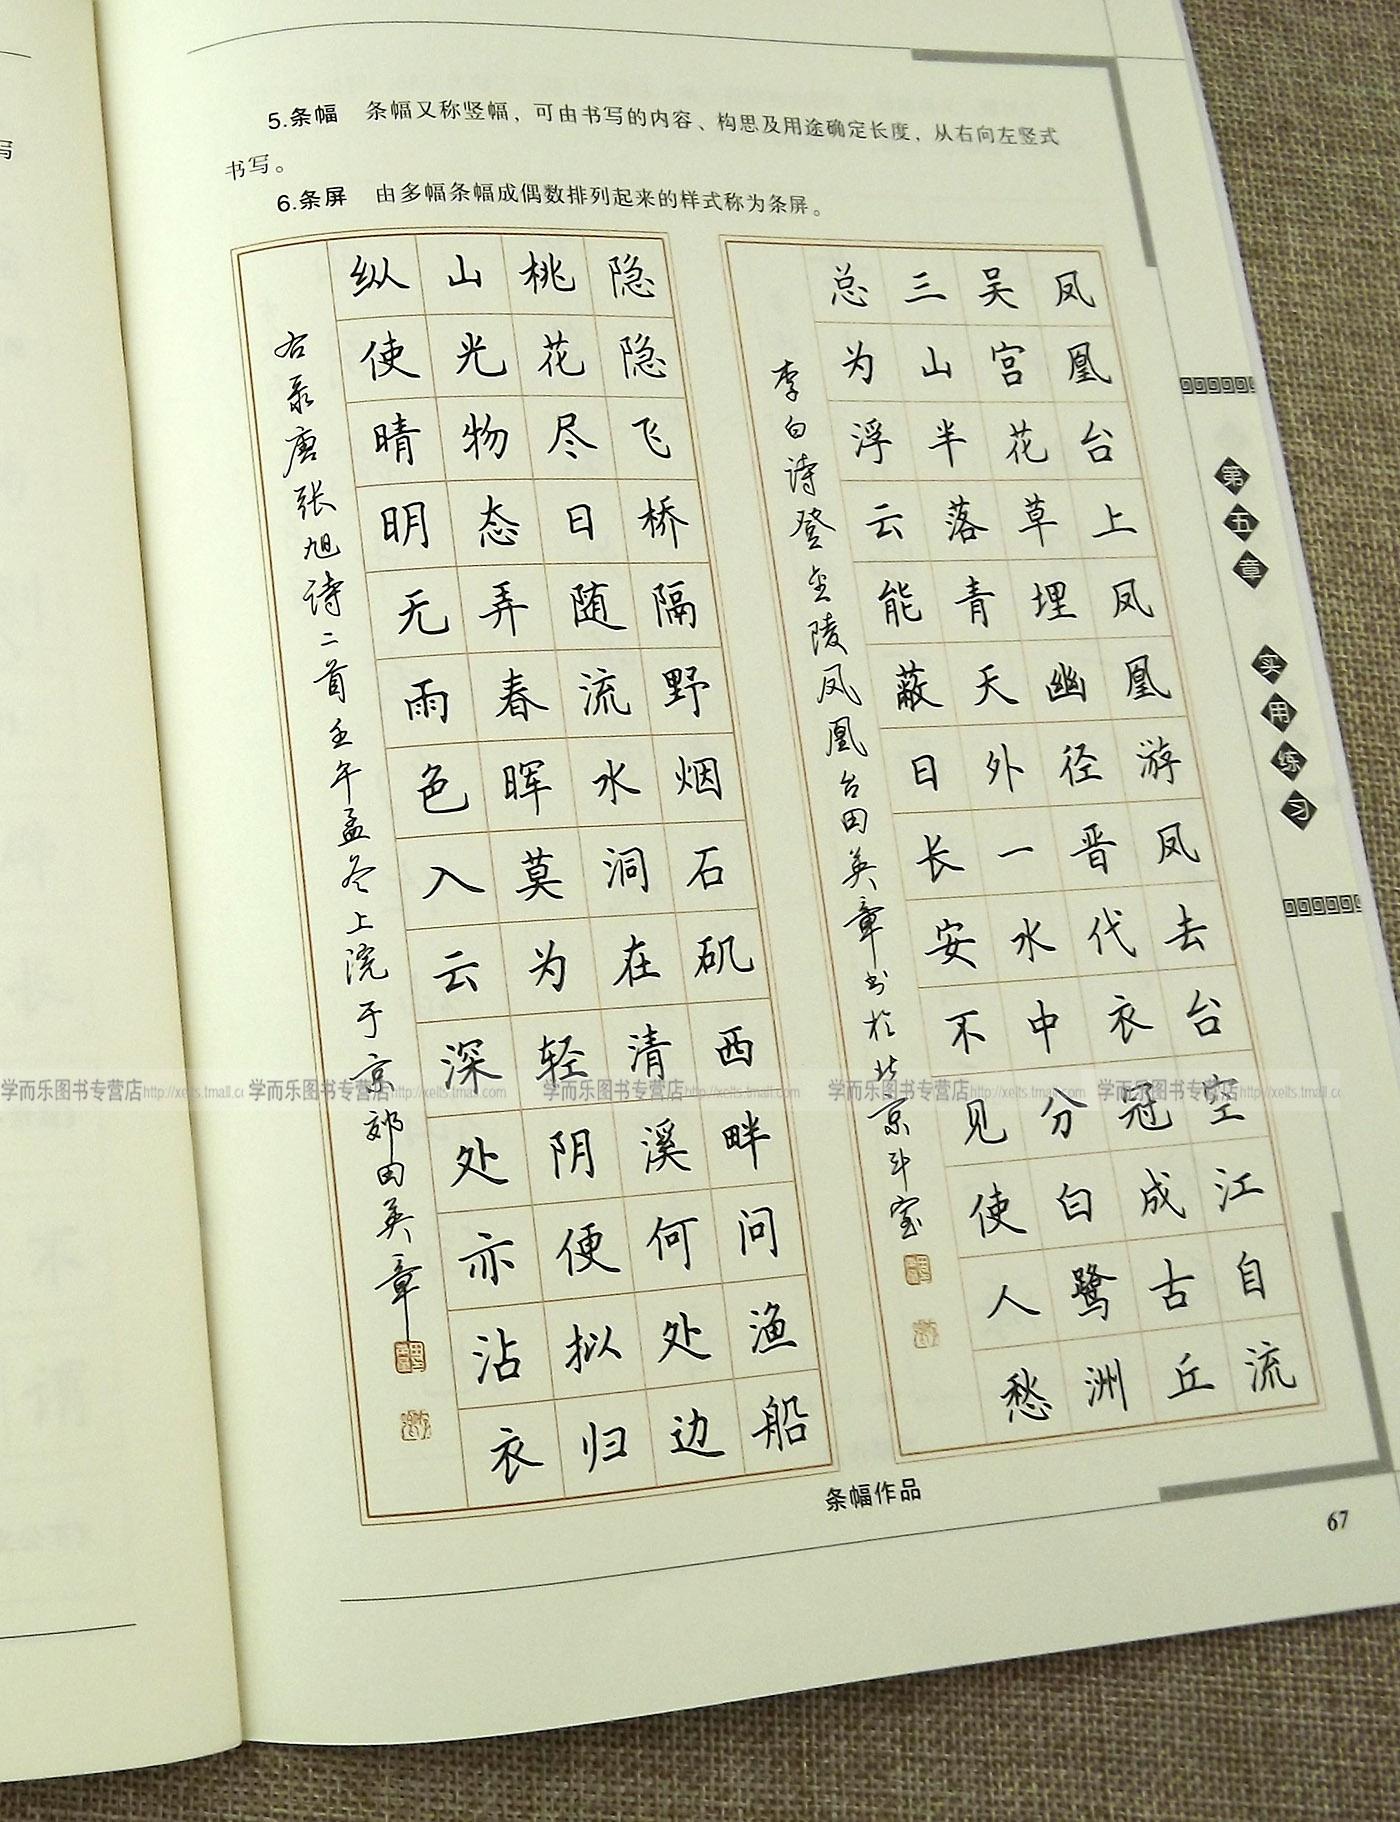 5.条幅 条幅又称竖幅，可由书写的内容、构思及用途确定长度，从右向左竖式
书写。
6.条屏 由多幅条幅成偶数排列起来的样式称为条屏。
凤凰台上凤凰游凤去台空江自流
吴宫花草埋幽径晋代衣冠成古丘
三山半落青天外一水中分白鹭洲
总为浮云能蔽日长安不见使人愁
李白诗登金陵凤凰台田英章书于北京斗室
隐隐飞桥隔野烟石矶西畔问渔船
桃花尽日随流水洞在清溪何处边
山光物态弄春晖莫为轻阴便拟归
纵使晴明无雨色入云深处亦沾衣
右录唐张旭诗二首壬午孟冬上浣于京郊田英章
条幅作品
第五章 实用练习
67
写
学而乐图书专营店http://xelts.tmall.co 学而乐图书专营店http://xelts.tmall.com 学而乐图书专营店http://xelts.tmall.com 学而乐图书专营店http://xelts.tmall.com 学而乐图书专营店http://xelts.tmall.co